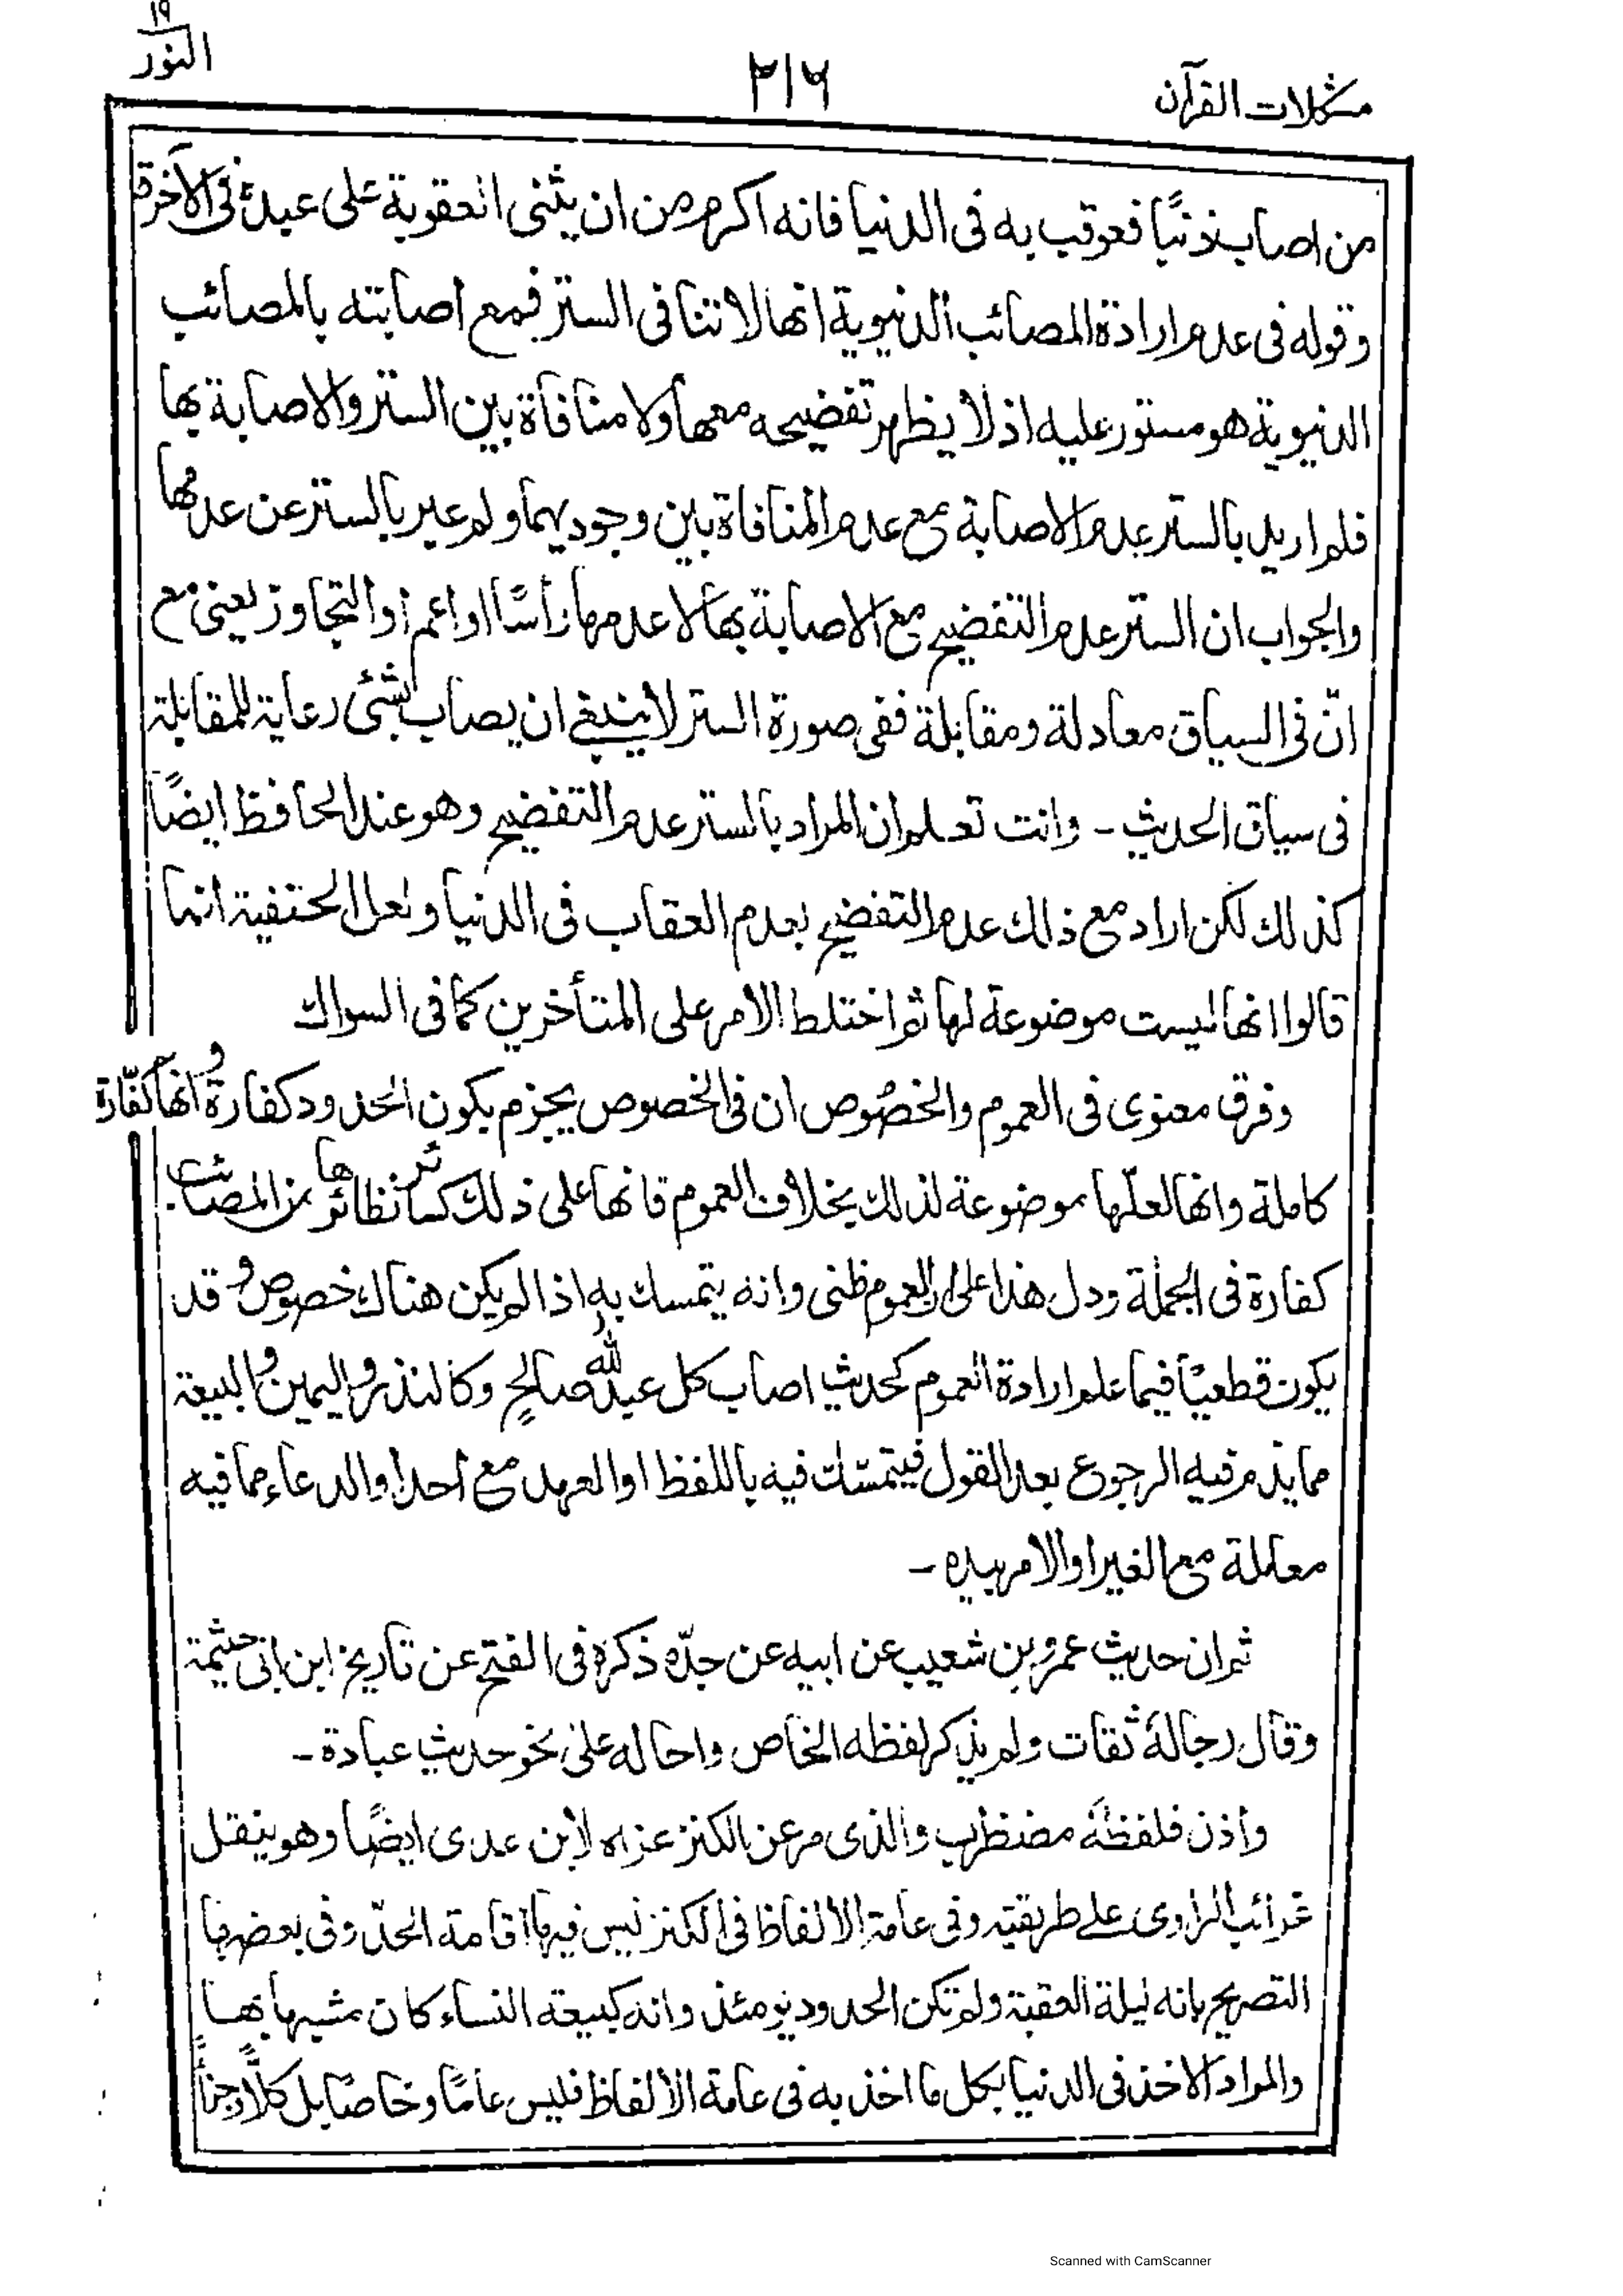 مشكلات القرآن
٢١٦
١٩
النور
من اصاب ذنبًا فعوقب به فى الدنيا فانه اكرم من ان يثنى العقوبة على عبده فى الآخرة
وقوله فى عدم ارادة المصائب الدنيوية انها لا تنافى الستر فمع اصابته بالمصائب
الدنيوية هو مستور عليه اذ لا يظهر تفضيحه معها ولا منافاة بين الستر والاصابة بها
فلم اريد بالستر عدم الاصابة مع عدم المنافاة بين وجوديهما ولم عبر بالستر عن عدمها
والجواب ان الستر عدم التفضيح مع الاصابة بها لا عدمها رأسًا او اعم او التجاوز يعنى مع
انّ فى السياق معادلة ومقابلة ففى صورة الستر لا ينبغى ان يصاب بشئ رعاية للمقابلة
فى سياق الحديث - وانت تعلم ان المراد بالستر عدم التفضيح وهو عند الحافظ ايضًا
كذلك لكن اراد مع ذلك عدم التفضيح بعدم العقاب فى الدنيا ولعل الحنفية انما
قالوا انها ليست موضوعة لها ثم اختلط الامر على المتأخرين كما فى السواك
وفرق معنوى فى العموم والخصوص ان فى الخصوص يجزم بكون الحدود كفارة و انها كفّارة
كاملة وانها لعلّها موضوعة لذلك بخلاف العموم فانها على ذلك كسائر نظائرها من المصائب
كفارة فى الجملة ودل هذا على ان العموم ظنى وانه يتمسك به اذا لم يكن هناك خصوص و قد
يكون قطعيًا فيما علم ارادة العموم كحديث اصاب كل عبد لله صالحٍ وكالنذر و اليمين و البيعة
مما يذم فيه الرجوع بعد القول فيتمسك فيه باللفظ او العهد مع احد او الدعاء مما فيه
معاملة مع الغير او الامر بيده -
ثم ان حديث عمرو بن شعيب عن ابيه عن جدّه ذكره فى الفتح عن تاريخ ابن ابى خيثمة
وقال رجاله ثقات ولم يذكر لفظه الخاص واحاله على نحو حديث عبادة -
وأذن فلفظه مضطرب والذى مر عن الكنز عزاه لابن عدى ايضًا وهو ينقل
غرائب الراوى على طريقته وفى عامة الالفاظ فى الكنز ليس فيها اقامة الحدّ وفى بعضها
التصريح بانه ليلة العقبة ولم تكن الحدود يومئذ وانه كبيعة النساء كان مشبها بها
والمراد الاخذ فى الدنيا بكل ما اخذ به فى عامة الالفاظ فليس عامًا وخاصًا بل كلًّا و جزأً
Scanned with CamScanner